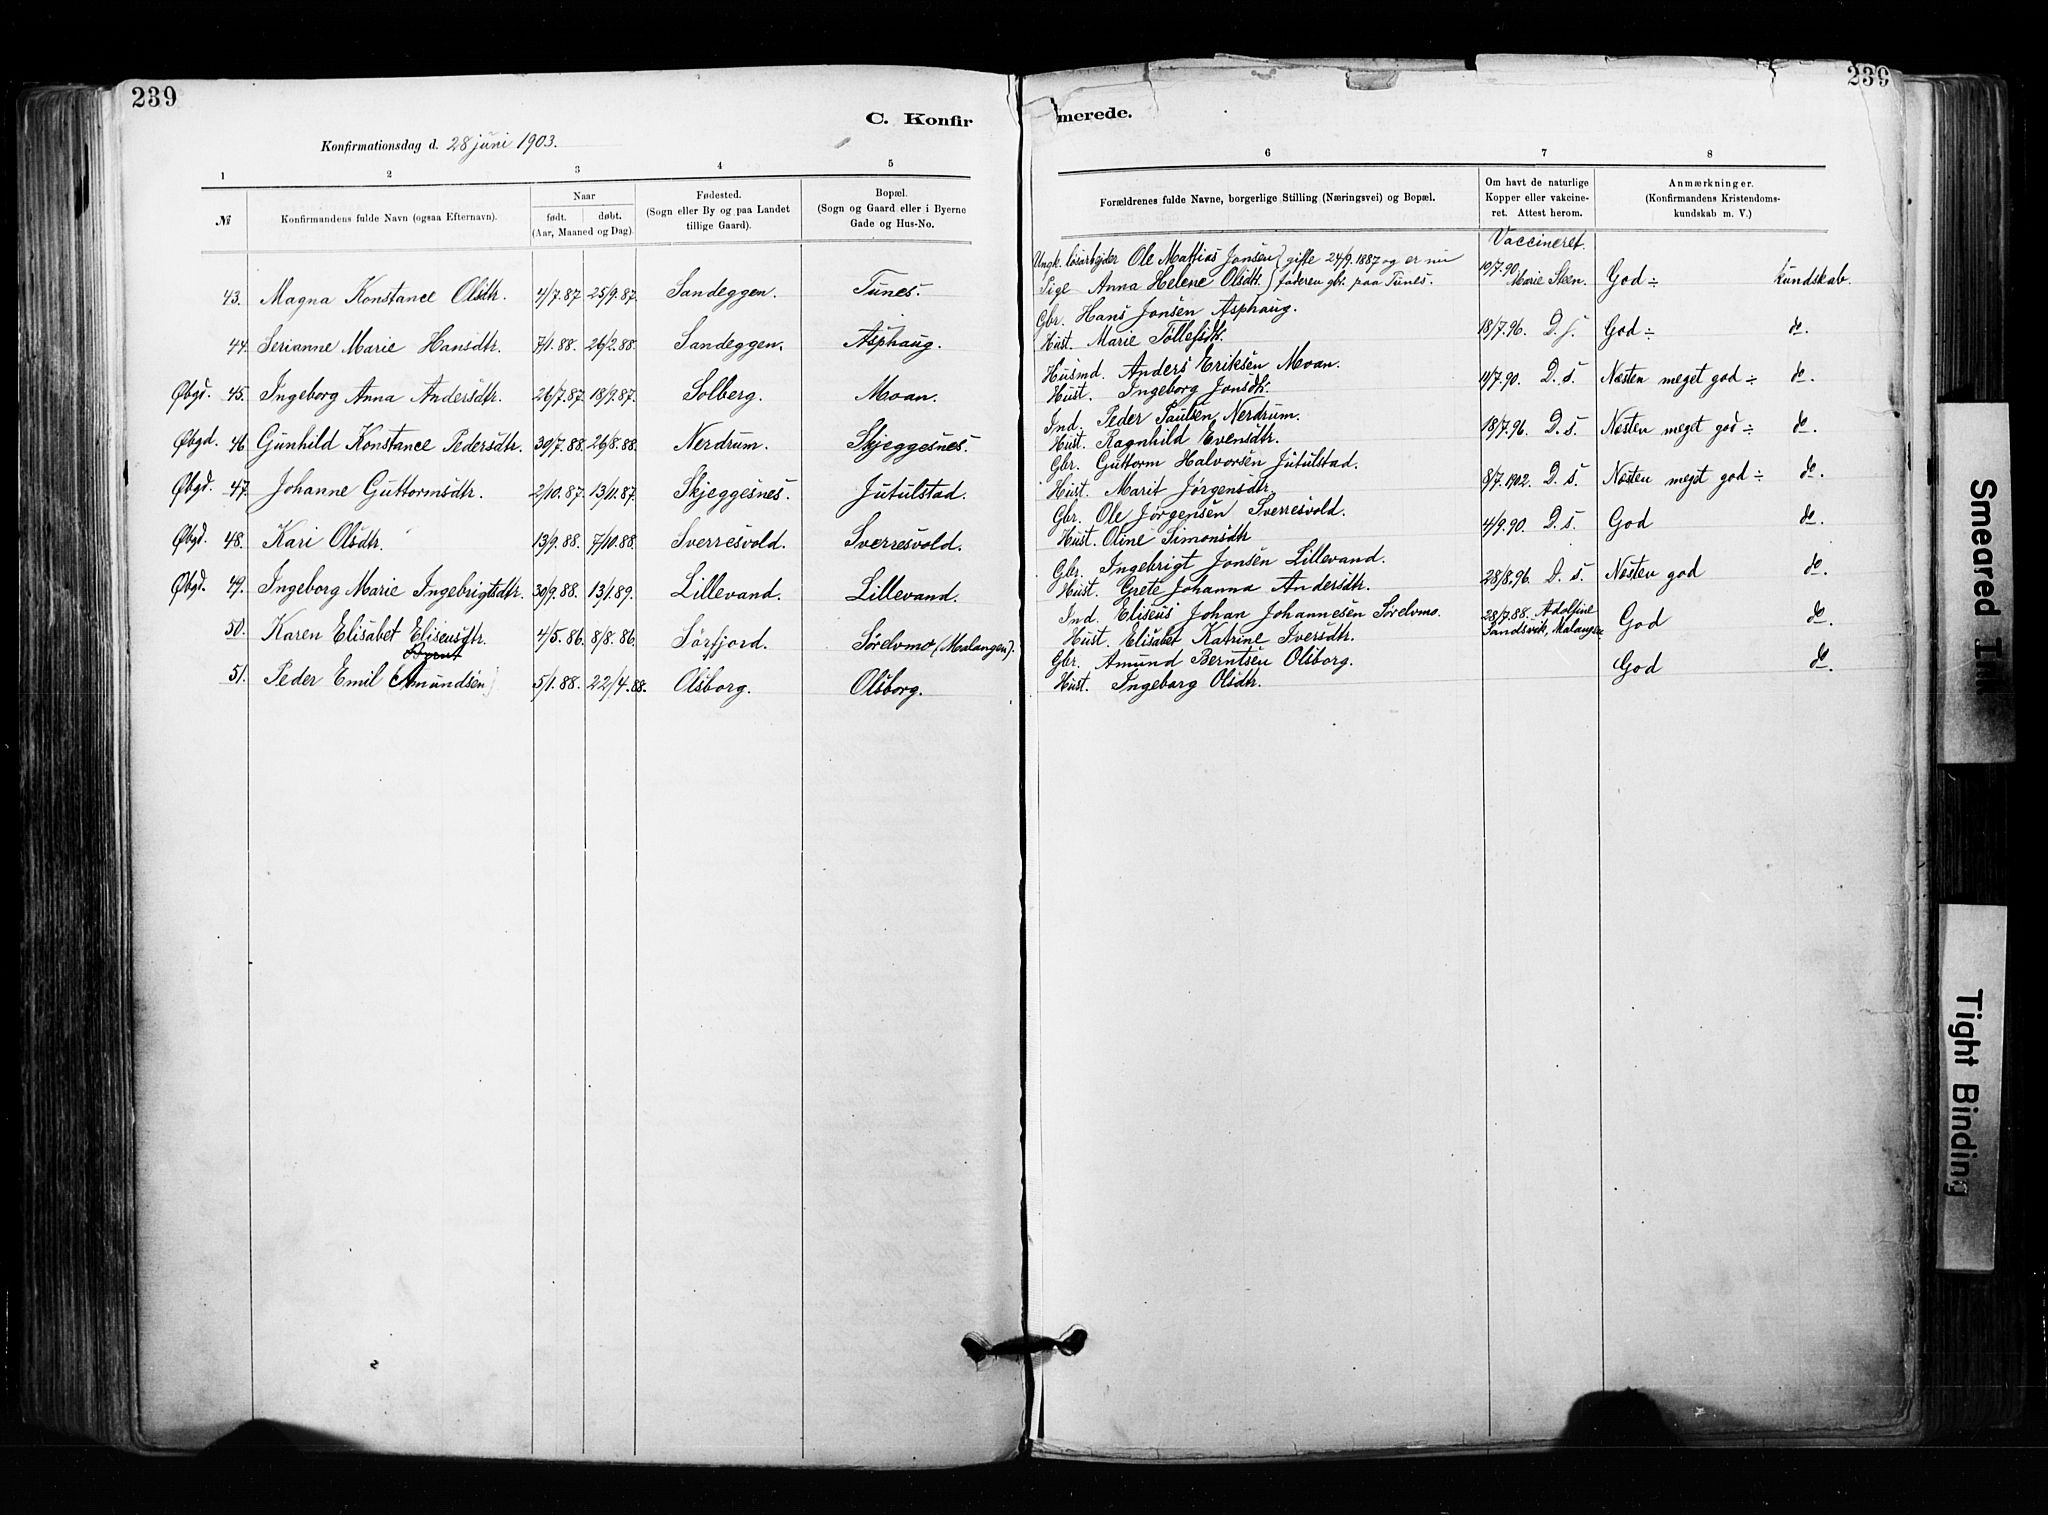 239
239
C. Konfir
merede.
Konfirmationsdag d. 28 juni 1903.
1 2 3 4 5 6 7 8
№
Konfirmandens fulde Navn (ogsaa Efternavn).
Naar
født. døbt.
(Aar, Maaned og Dag).
Fødested.
(Sogn eller By og paa Landet
tillige Gaard).
Bopæl.
(Sogn og Gaard eller i Byerne
Gade og Hus-No.
Forældrenes fulde Navne, borgerlige Stilling (Næringsvei) og Bopæl.
Om havt de naturlige
Kopper eller vakcine-
ret. Attest herom.
Anmærkninger.
(Konfirmandens Kristendoms-
kundskab m. V.)
Vaccineret.
Ungk. løsarbejder Ole Mattias Jonsen gifte 24/9.1887 og er nu
43. Magna Konstance Olsdtr. 4/7.87 25/9.87. Sandeggen. Tunes. Pige Anna Helene Olsdtr. faderen gbr. paa Tunes. 19/7.90 Marie Steen. God ÷ kundskab.
Gbr. Hans Jonsen Asphaug.
44. Serianne Marie Hansdtr. 7/1.88. 26/2.88. Sandeggen. Asphaug. Hust. Marie Tollefsdtr. 18/7.96. D. s. God ÷ do.
Husmd. Anders Eriksen Moan.
Øbgd. 45. Ingeborg Anna Andersdtr. 26/7.87. 18/9.87. Solberg. Moan. Hust. Ingeborg Jonsdtr. 11/7.90. D. s. Næsten meget god ÷ do.
Ind. Peder Paulsen Nerdrum.
Øbgd. 46. Gunhild Konstance Pedersdtr. 30/7.88. 26/8.88. Nerdrum. Skjeggesnes. Hust. Ragnhild Evensdtr. 18/7.96. D. s. Næsten meget god ÷ do.
Gbr. Guttorm Halvorsen Jutulstad.
Øbgd. 47. Johanne Guttormsdtr. 2/10.87. 13/11.87. Skjeggesnes. Jutulstad. Hust. Marit Jørgensdtr. 8/7.1902. D. s. Næsten meget god ÷ do.
Gbr. Ole Jørgensen Sverresvold.
Øbgd. 48. Kari Olsdtr. 13/9.88. 7/10.88. Sverresvold. Sverresvold. Hust. Oline Simonsdtr 4/9.90. D. s. God do.
Gbr. Ingebrigt Jonsen Lillevand.
Øbgd. 49. Ingeborg Marie Ingebrigtsdtr. 30/9.88. 13/1.89. Lillevand. Lillevand. Hust. Grete Johanna Andersdtr. 28/8.96. D. s. Næsten god do.
Ind. Eliseus Johan Johannesen Sørelvmo. 28/7.88. Adolfine
50. Karen Elisabet Eliseusdtr. 4/5.86. 8/8.86. Sørfjord. Sørelvmo (Malangen). Hust. Elisabet Katrine Iversdtr. Sandsvik, Malangen God do.
Bernt
Gbr. Amund Berntsen Olsborg.
51. Peder Emil Amundsen 5/1.88. 22/4.88. Olsborg. Olsborg. Hust. Ingeborg Olsdtr. God do.
Smeared Ink
Tight Binding